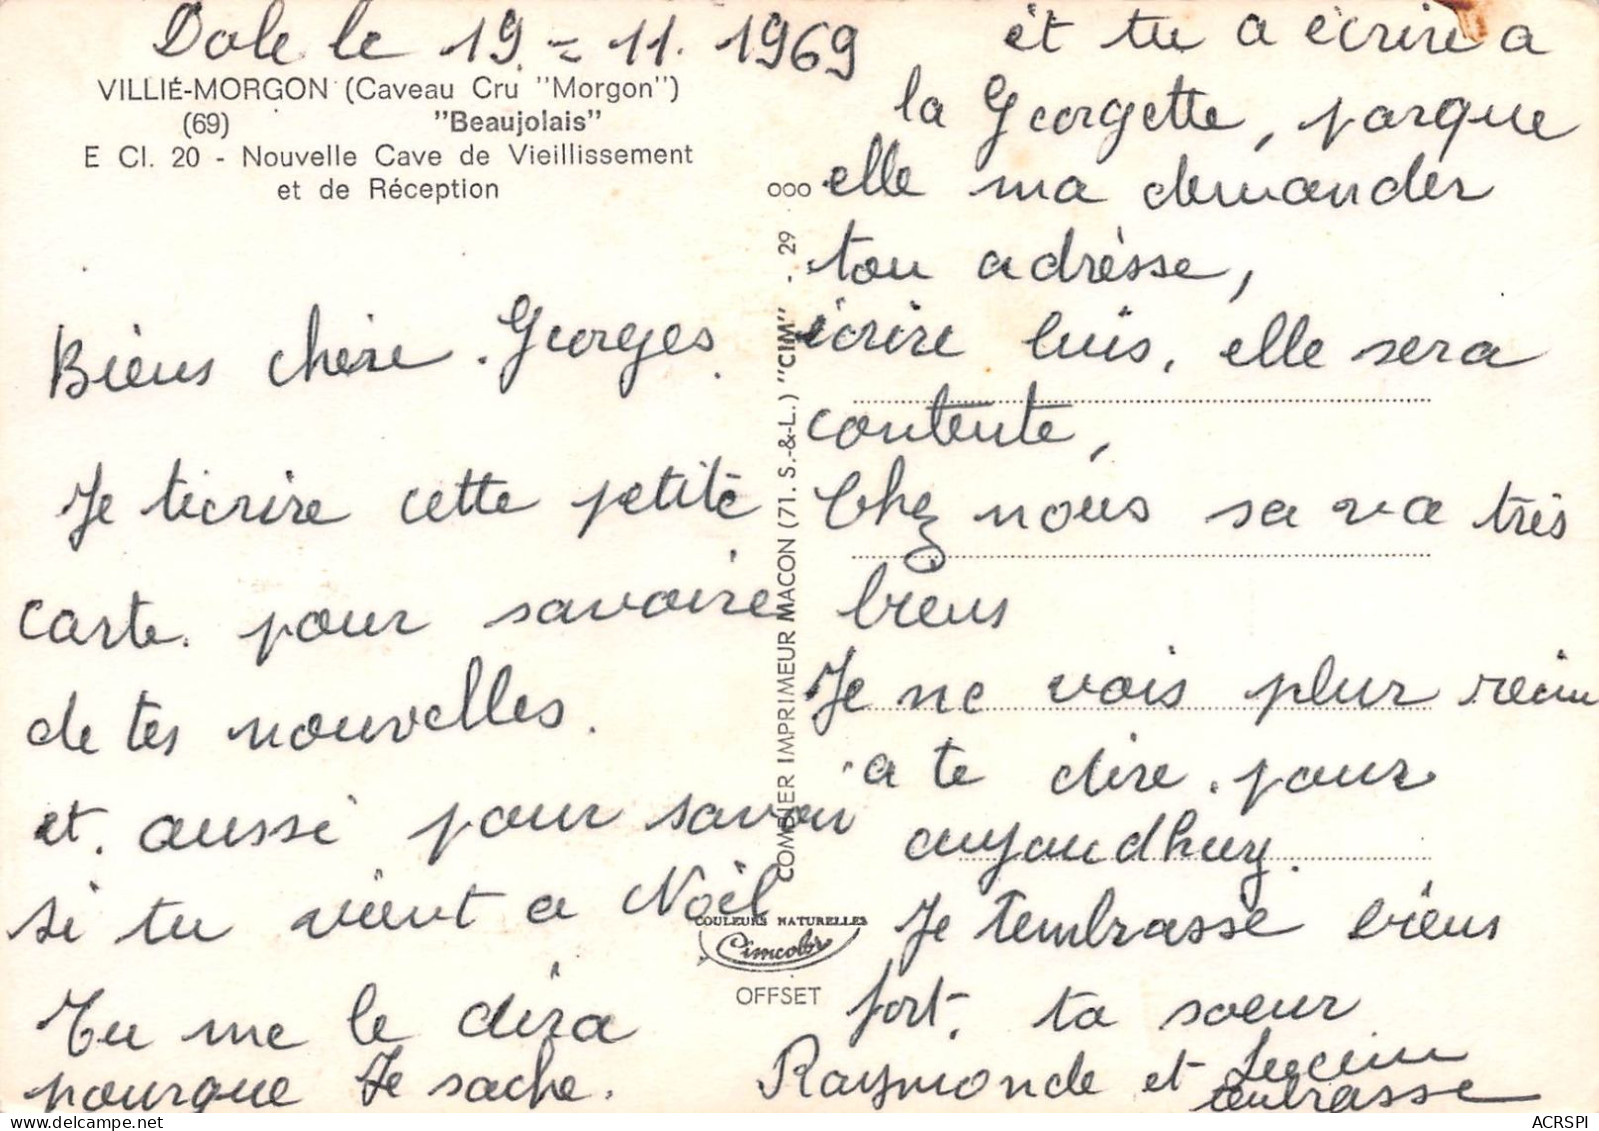 Dole le 19 = 11. 1969
VILLIÉ-MORGON (Caveau Cru "Morgon")
(69) "Beaujolais"
E Cl. 20 - Nouvelle Cave de Vieillissement
et de Réception
Biens chère. Georges.
Je t'ècrire cette petite
carte. pour savoire
de tes nouvelles.
et. aussi pour savoir
si tu vient a Noël
Tu me le dira
pourque Je sache.
COMBIER IMPRIMEUR MACON (71. S.-&-L.) "CIM" - 29
COULEURS NATURELLES
Cimcolor
OFFSET
et tu a ècrire a
la Georgette, parque
ooo elle ma demander
ton adrèsse,
ècrire luis, elle sera
contente,
Chez nous sa va très
biens
Je ne vois plur
a te dire. pour
aujaudhuy.
Je tembrasse biens
fort. ta soeur
Raymonde et Lucein
tembrasse
ACRSPI